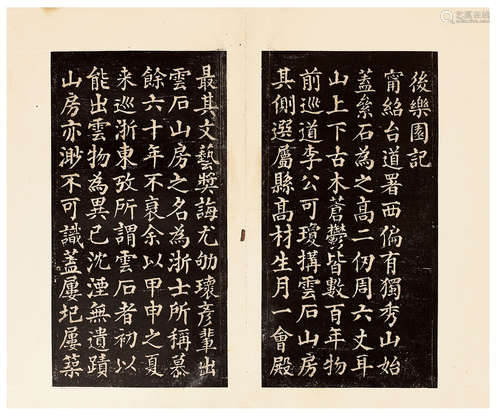 後樂園記
甯紹台道署西偏有獨秀山始
蓋絫石為之高二仞周六丈耳
山上下古木蒼鬱皆數百年物
前巡道李公可瓊搆雲石山房
其側選屬縣高材生月一會殿
最其文藝獎誨尤劬瓌彥輩出
雲石山房之名為浙士所稱慕
餘六十年不衰余以甲申之夏
來巡浙東攷所謂雲石者初以
能出雲物為異已沈湮無遺蹟
山房亦渺不可識蓋屢圮屢築